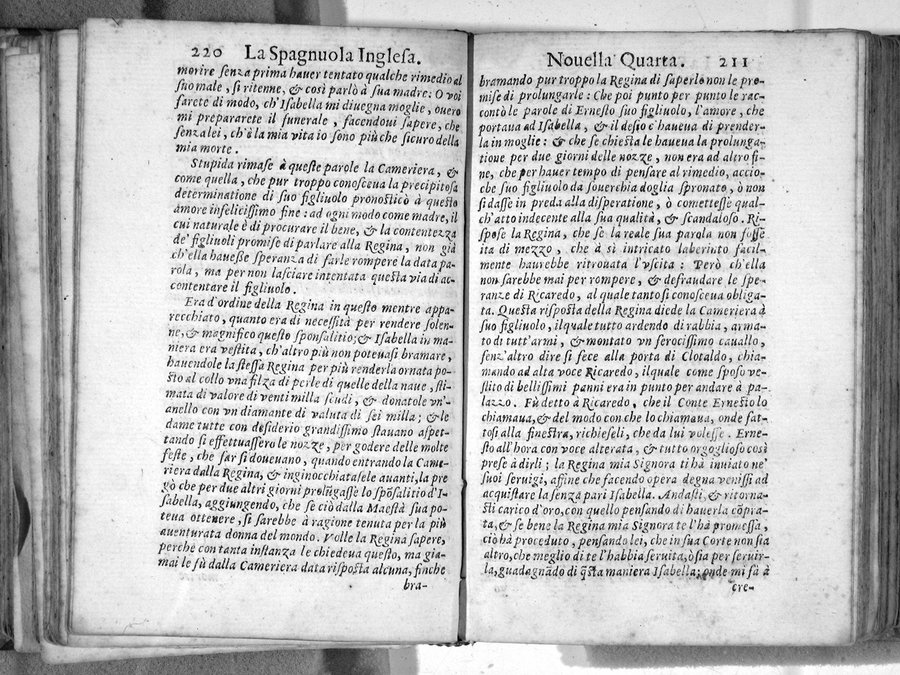 220 La Spagnuola Inglesa.
morire senza prima hauer tentato qualche rimedio al
suo male, si ritenne, & così parlò à sua madre: O voi
farete di modo, ch'Isabella mi diuegna moglie, ouero
mi prepararete il funerale, facendoui sapere, che
senza lei, ch'è la mia vita io sono più che sicuro della
mia morte.
Stupida rimase à queste parole la Cameriera, &
come quella, che pur troppo conosceua la precipitosa
determinatione di suo figliuolo pronosticò à questo
amore infelicissimo fine: ad ogni modo come madre, il
cui naturale è di procurare il bene, & la contentezza
de' figliuoli promise di parlare alla Regina, non già
ch'ella hauesse speranza di farle rompere la data pa-
rola, ma per non lasciare intentata questa via di ac-
contentare il figliuolo.
Era d'ordine della Regina in questo mentre appa-
recchiato, quanto era di necessità per rendere solen-
ne, & magnifico questo sponsalitio; & Isabella in ma-
niera era vestita, ch'altro più non poteuasi bramare,
hauendole la stessa Regina per più renderla ornata po-
sto al collo vna filza di perle di quelle della naue, sti-
mata di valore di venti mila scudi, & donatole vn'
anello con vn diamante di valuta di sei milla; & le
dame tutte con desiderio grandissimo stauano aspet-
tando si effettuassero le nozze, per godere delle molte
feste, che far si doueuano, quando entrando la Came-
riera dalla Regina, & inginocchiatasele auanti, la pre
gò che per due altri giorni prolũgasse lo spõsalitio d'I-
sabella, aggiungendo, che se ciò dalla Maestà sua po-
teua ottenere, si sarebbe à ragione tenuta per la più
auenturata donna del mondo. Volle la Regina sapere,
perche con tanta instanza le chiedeua questo, ma gia-
mai le fù dalla Cameriera data risposta alcuna, finche
bra-
Nouella Quarta. 211
bramando pur troppo la Regina di saperlo non le pro-
mise di prolungarle: Che poi punto per punto le rac-
contò le parole di Ernesto suo figliuolo, l'amore, che
portaua ad Isabella, & il desio c'haueua di prender-
la in moglie: & che se chiesta le haueua la prolunga-
tione per due giorni delle nozze, non era ad altro fi-
ne, che per hauer tempo di pensare al rimedio, accio-
che suo figliuolo da souerchia doglia spronato, ò non
si dasse in preda alla disperatione, ò comettesse qual-
ch'atto indecente alla sua qualità, & scandaloso. Ri-
spose la Regina, che se la reale sua parola non fosse
ita di mezzo, che à sì intricato laberinto facil-
mente haurebbe ritrouata l'vscita: Però ch'ella
non sarebbe mai per rompere, & defraudare le spe-
ranze di Ricaredo, al quale tanto si conosceua obliga-
ta. Questa risposta della Regina diede la Cameriera à
suo figliuolo, ilquale tutto ardendo di rabbia, arma-
to di tutt'armi, & montato vn ferocissimo cauallo,
senz'altro dire si fece alla porta di Clotaldo, chia-
mando ad alta voce Ricaredo, ilquale come sposo ve-
stito di bellissimi panni era in punto per andare à pa-
lazzo. Fù detto à Ricaredo, che il Conte Ernesto lo
chiamaua, & del modo con che lo chiamaua, onde fat-
tosi alla finestra, richieseli, che da lui volesse. Erne-
sto all'hora con voce alterata, & tutto orgoglioso così
prese à dirli; la Regina mia Signora ti hà inuiato ne'
suoi seruigi, affine che facendo opera degna venissi ad
acquistare la senza pari Isabella. Andasti, & ritorna-
sti carico d'oro, con quello pensando di hauerla cõpra-
ta, & se bene la Regina mia Signora te l'hà promessa,
ciò hà proceduto, pensando lei, che in sua Corte non sia
altro, che meglio di te l'habbia seruita, ò sia per seruir-
la, guadagnãdo di q̃sta maniera Isabella; onde mi sà à
cre-